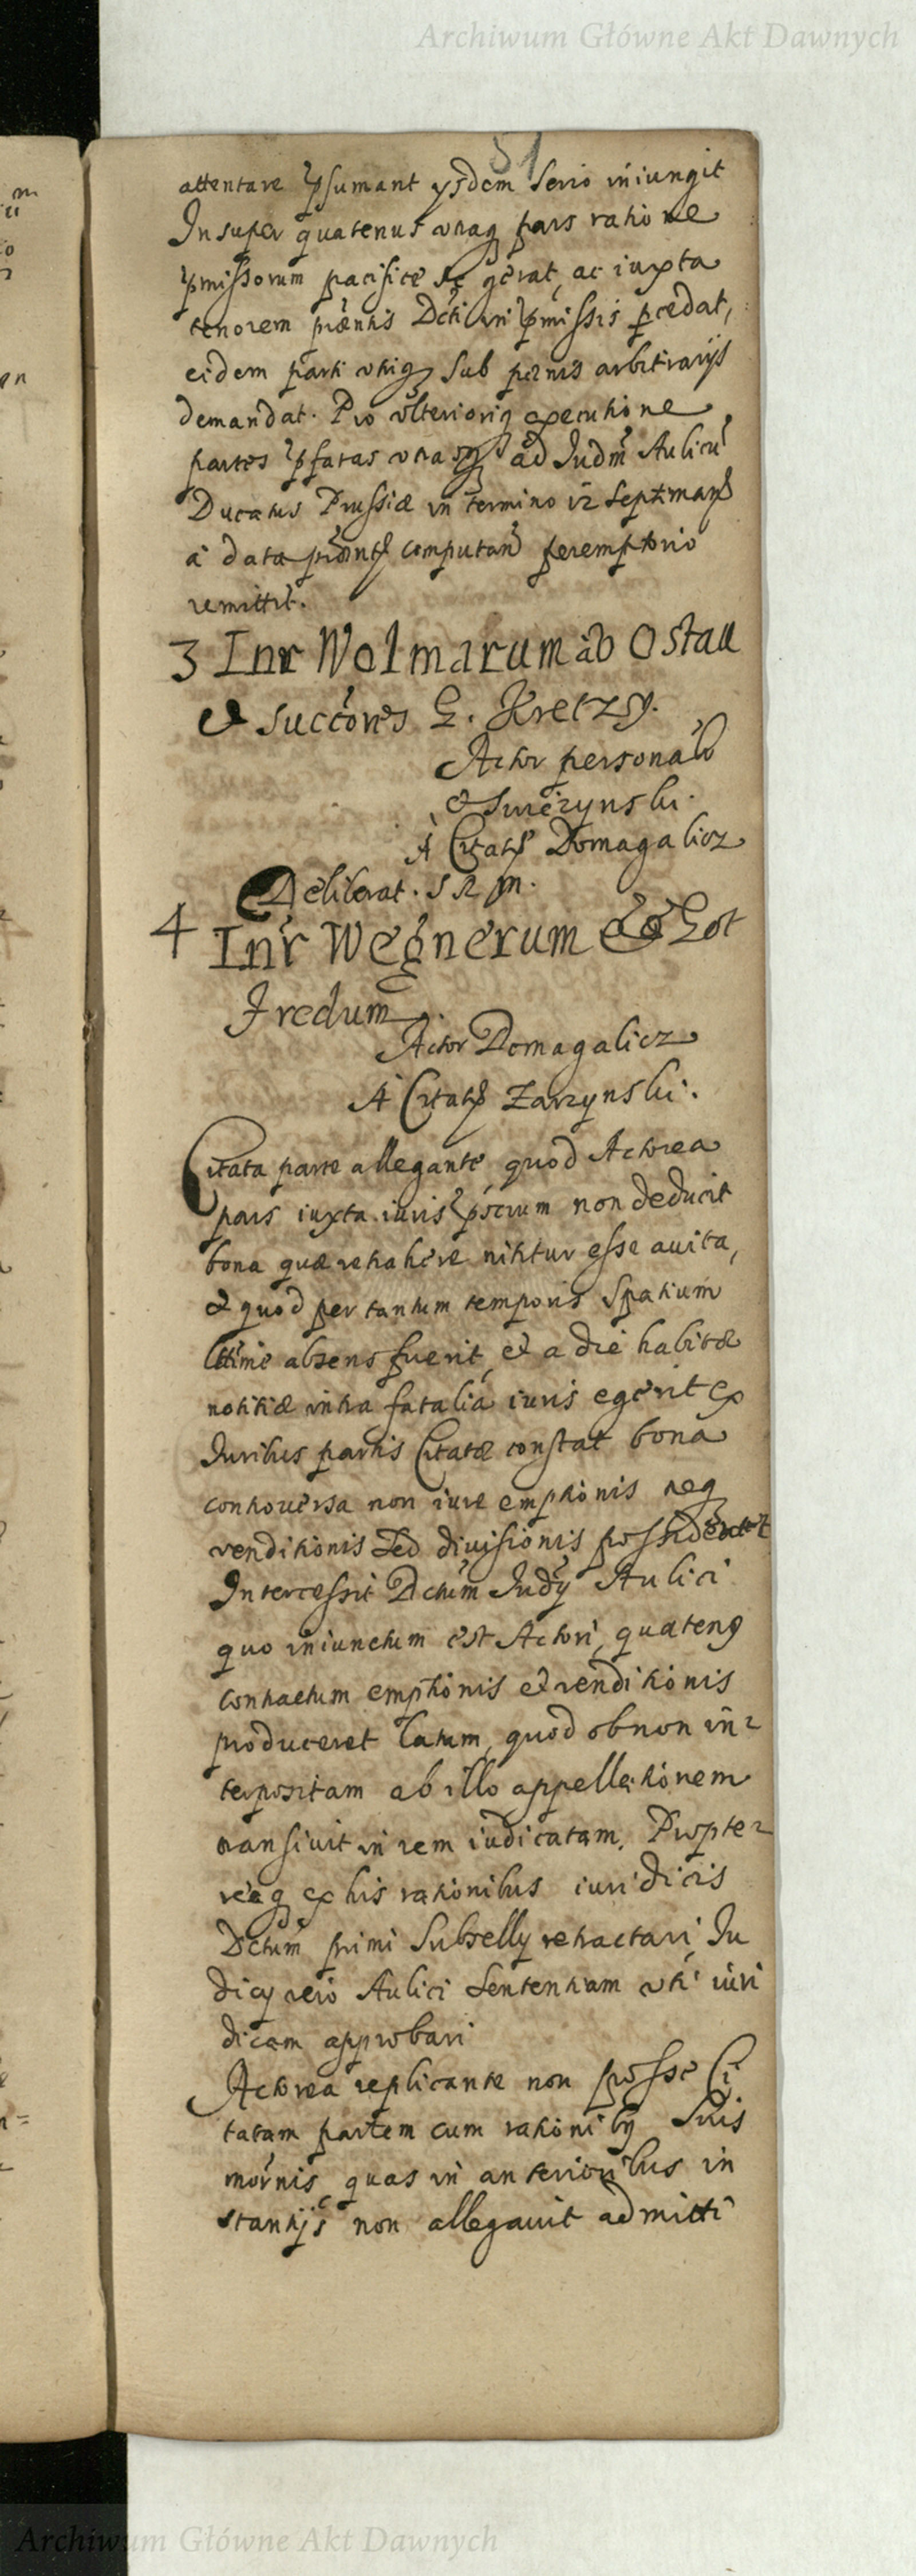 Archiwum Główne Akt Dawnych
51
attentare psumant ysdem serio iniungit
Insuper quatenus vtraq pars ratione
pmissorum pacifice se gerat, ac iuxta
tenorem pntis Dcti in pmissis pcedat,
eidem parti vtriq sub pænis arbitrarijs
demandat. Pro vlteriorig executione
partes pfatas vtrasq ad Judm Aulicu
Ducatus Prussiæ in termino 12 Septman
à data pnt computan peremptorio
remittit.
3 Intr Wolmarum ab Ostau
et succores G. Kretzsy.
Actor personal
et Swiezynski.
A Citat Domagalicz
Deliberat. S R M.
4 Intr Wegnerum et Got
fredum
Actor Domagalicz
A Citat Zarzynski.
Citata parte allegante quod Actorea
pars iuxta iuris pscrum non deducit
bona quæ retrahere nititur esse auita,
et quod per tantum temporis spatium
lttime absens fuerit, et a die habitæ
notitiæ intra fatalia iuris egerit ex
Juribus partis Citatæ constat bona
controuersa non iure emptionis neq
venditionis sed diuisionis
Intercessit Dctum Judy Aulici
quo iniunctum est Actori, quateng
contractum emptionis et venditionis
produceret latum, quod ob non in-
terpositam ab illo appellationem
transiuit in rem iudicatam. Propte-
reaq ex his rationibus iuridicis
Dctum primi Subselly retractari Ju
dicy vero Aulici Sententiam vti iuri
dicam approbari
Actorea replicante non posse Ci
tatam partem cum rationiby suis
quas in anterioribus in
stantijs non allegauit admitti
Archiwum Główne Akt Dawnych